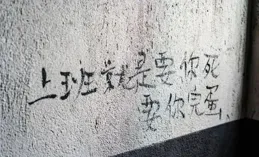 上班就是要你死
要你完蛋